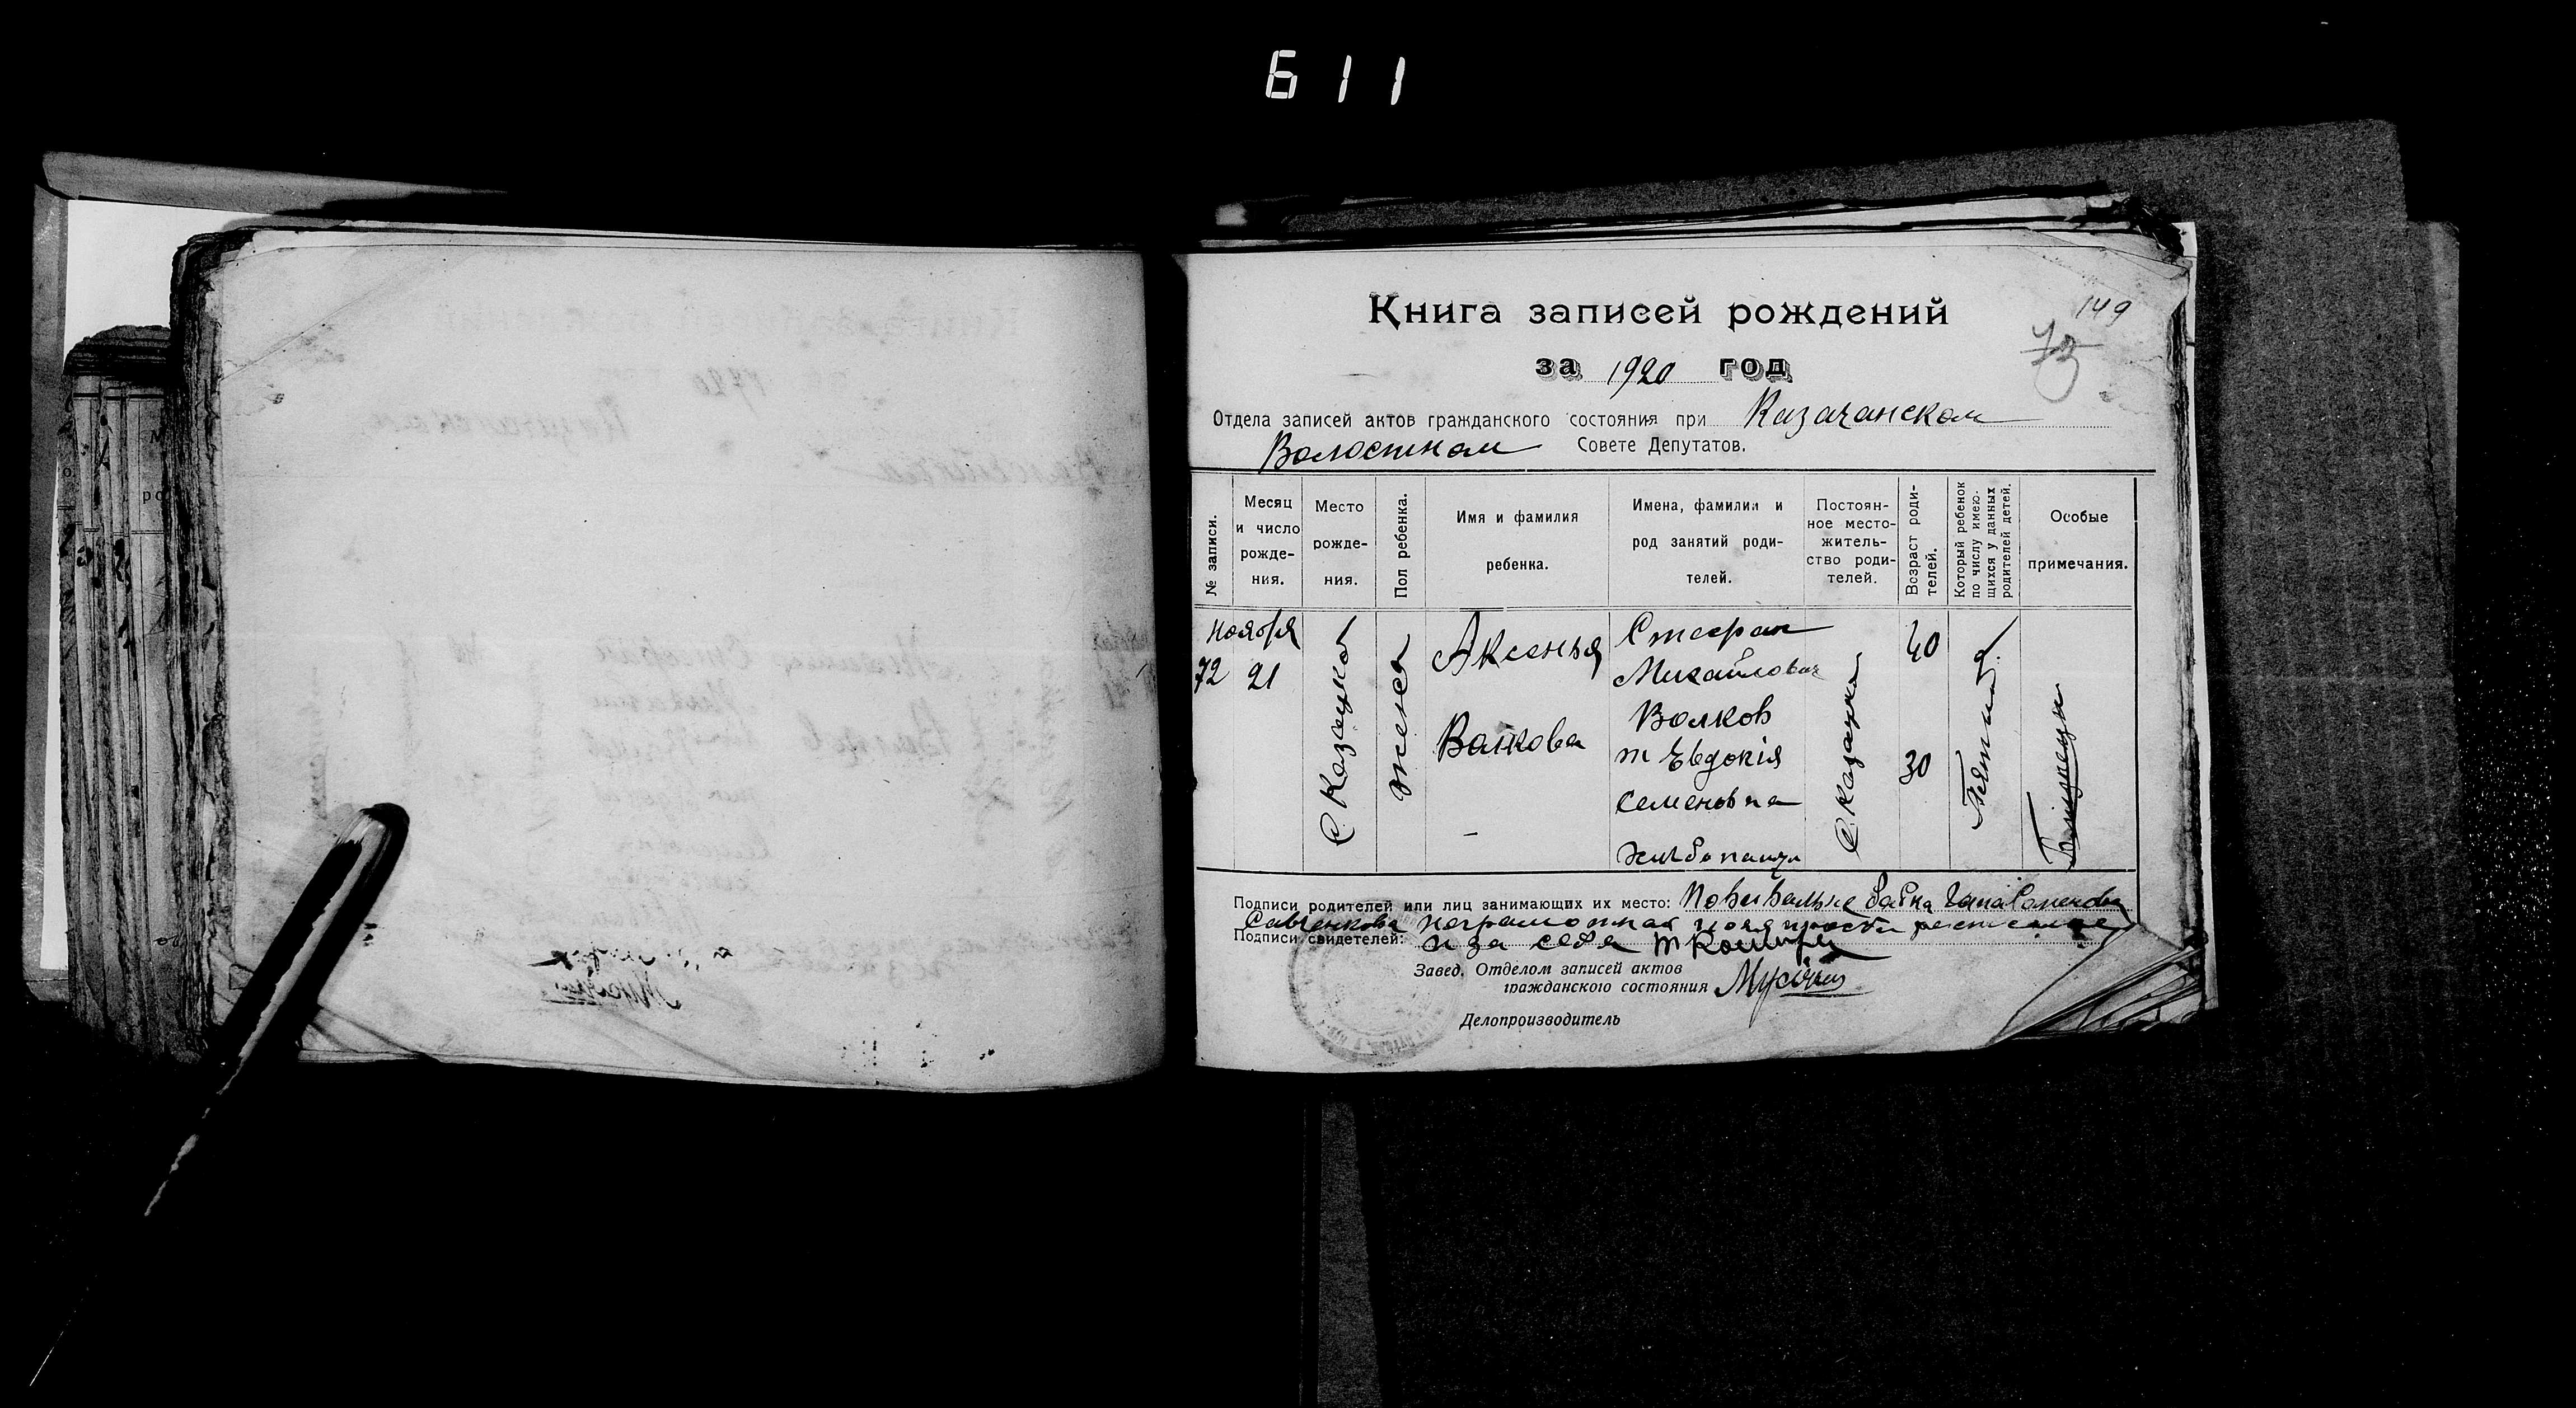 611
149
73
Книга записей рождений
за 1920 год
Отдела записей актов гражданского состояния при Казачанском
Волостном Совете Депутатов.
№ записи.
Месяц и число рожде-ния.
Место рожде-ния.
Пол ребенка.
Имя и фамилия ребенка.
Имена, фамилии и род занятий роди-телей.
Постоян-ное место-житель-ство роди-телей.
Возраст роди-телей.
Который ребенок по числу имею-щихся у данных родителей детей.
Особые примечания.
72
ноября
21
С. Казачка
женск
Аксенья
Волкова
Стефан
Михайлович
Волков
т Евдокія
Семеновна
хлебопашцы
С. Казачка
40
30
Пятый
Близнецы
Подписи родителей или лиц занимающих их место: Повивальне бабка
Савченкова неграмотная
Подписи свидетелей: и за себя
Завед. Отделом записей актов
гражданского состояния
Делопроизводитель